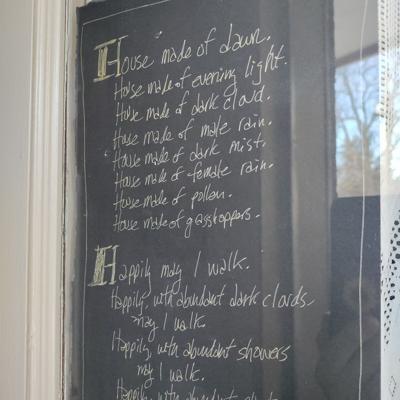 House made of dawn.
House made of evening light.
House made of dark cloud.
House made of male rain.
House made of dark mist.
House made of female rain.
House made of pollen.
House made of grasshoppers.
Happily may I walk.
Happily, with abundant dark clouds,
may I walk.
Happily, with abundant showers
may I walk.
Happily, with abundant